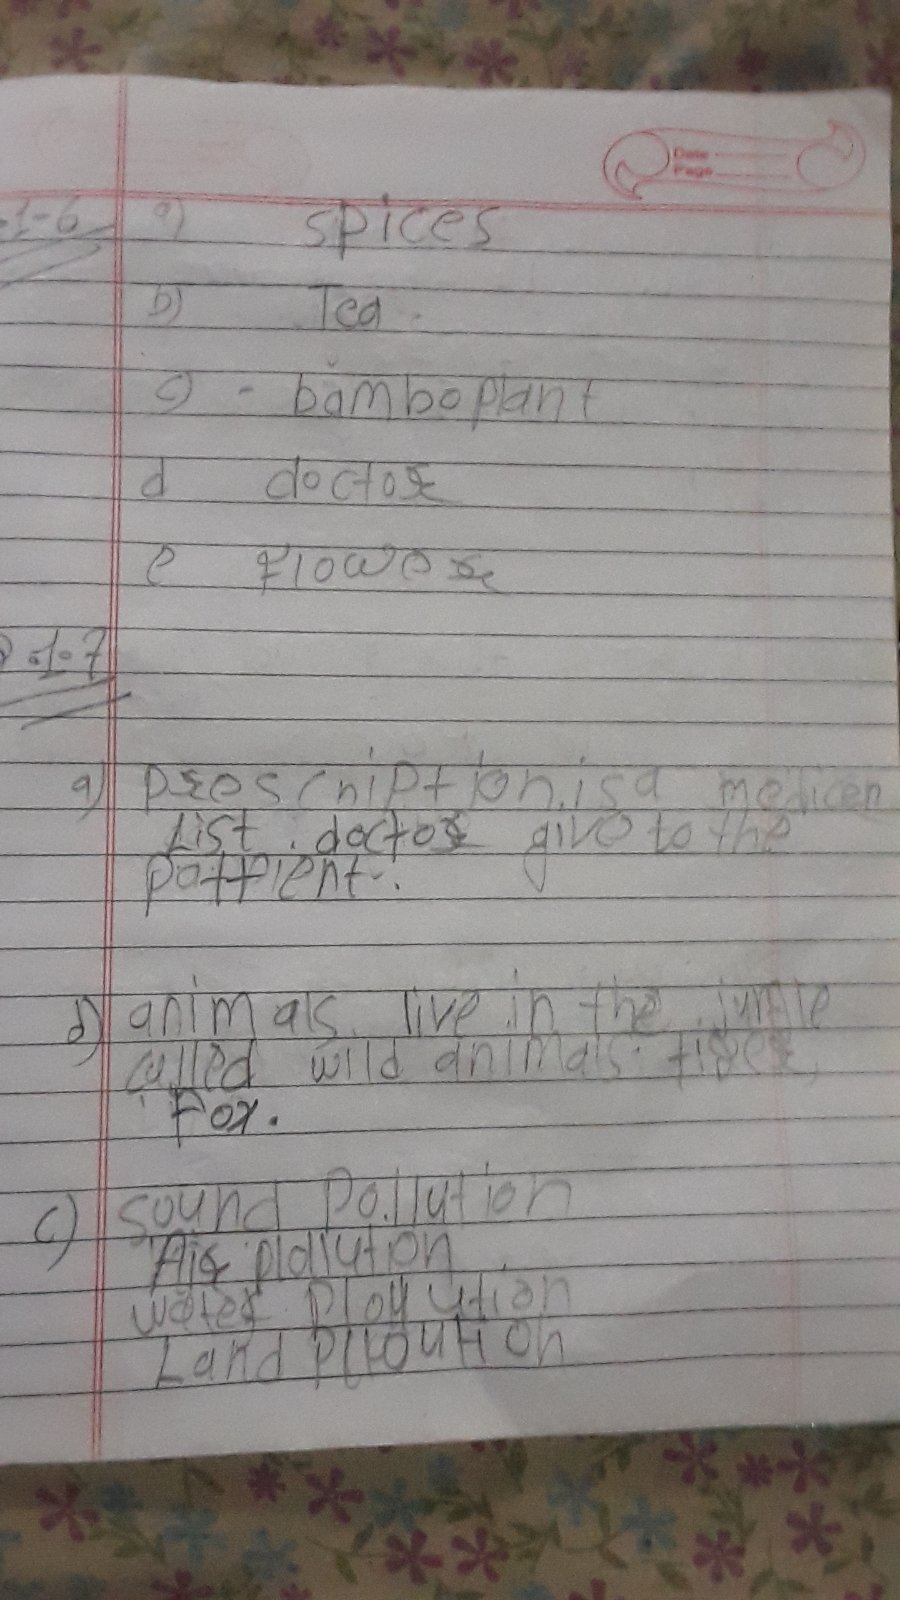 Date
Page
-1-6 a) spices
b) Tea.
c) - bamboplant
d doctor
e Flower
Q.1-7
a) prescription is a medicen
List. doctor give to the
pattient.
b) animals live in the jungle
called wild animals. tiger,
Fox.
c) Sound Pollution
Air plallution
water Plollution
Land Plloution